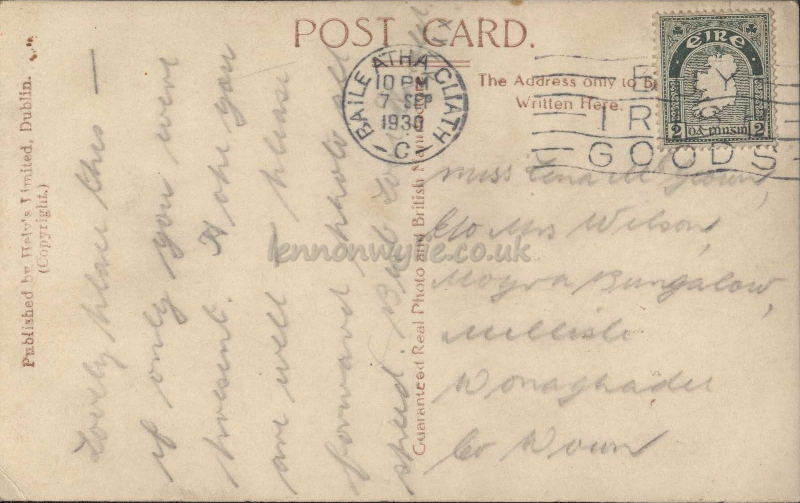 POST CARD.
The Address only to be
Written Here.
BAILE ATHA CLIATH
10 PM
7 SEP
1930
C
TR
GOODS
éire
2 2
Published by Hely's Limited, Dublin.
(Copyright.)
Guaranteed Real Photo and British
Lovely place this —
if only you were
present. Hope you
are well & please
forward photo
speed.
Miss Lena
C/o Mrs Wilson,
Moyra Bungalow,
Millisle
Donaghadee
Co Down
lennonwylie.co.uk